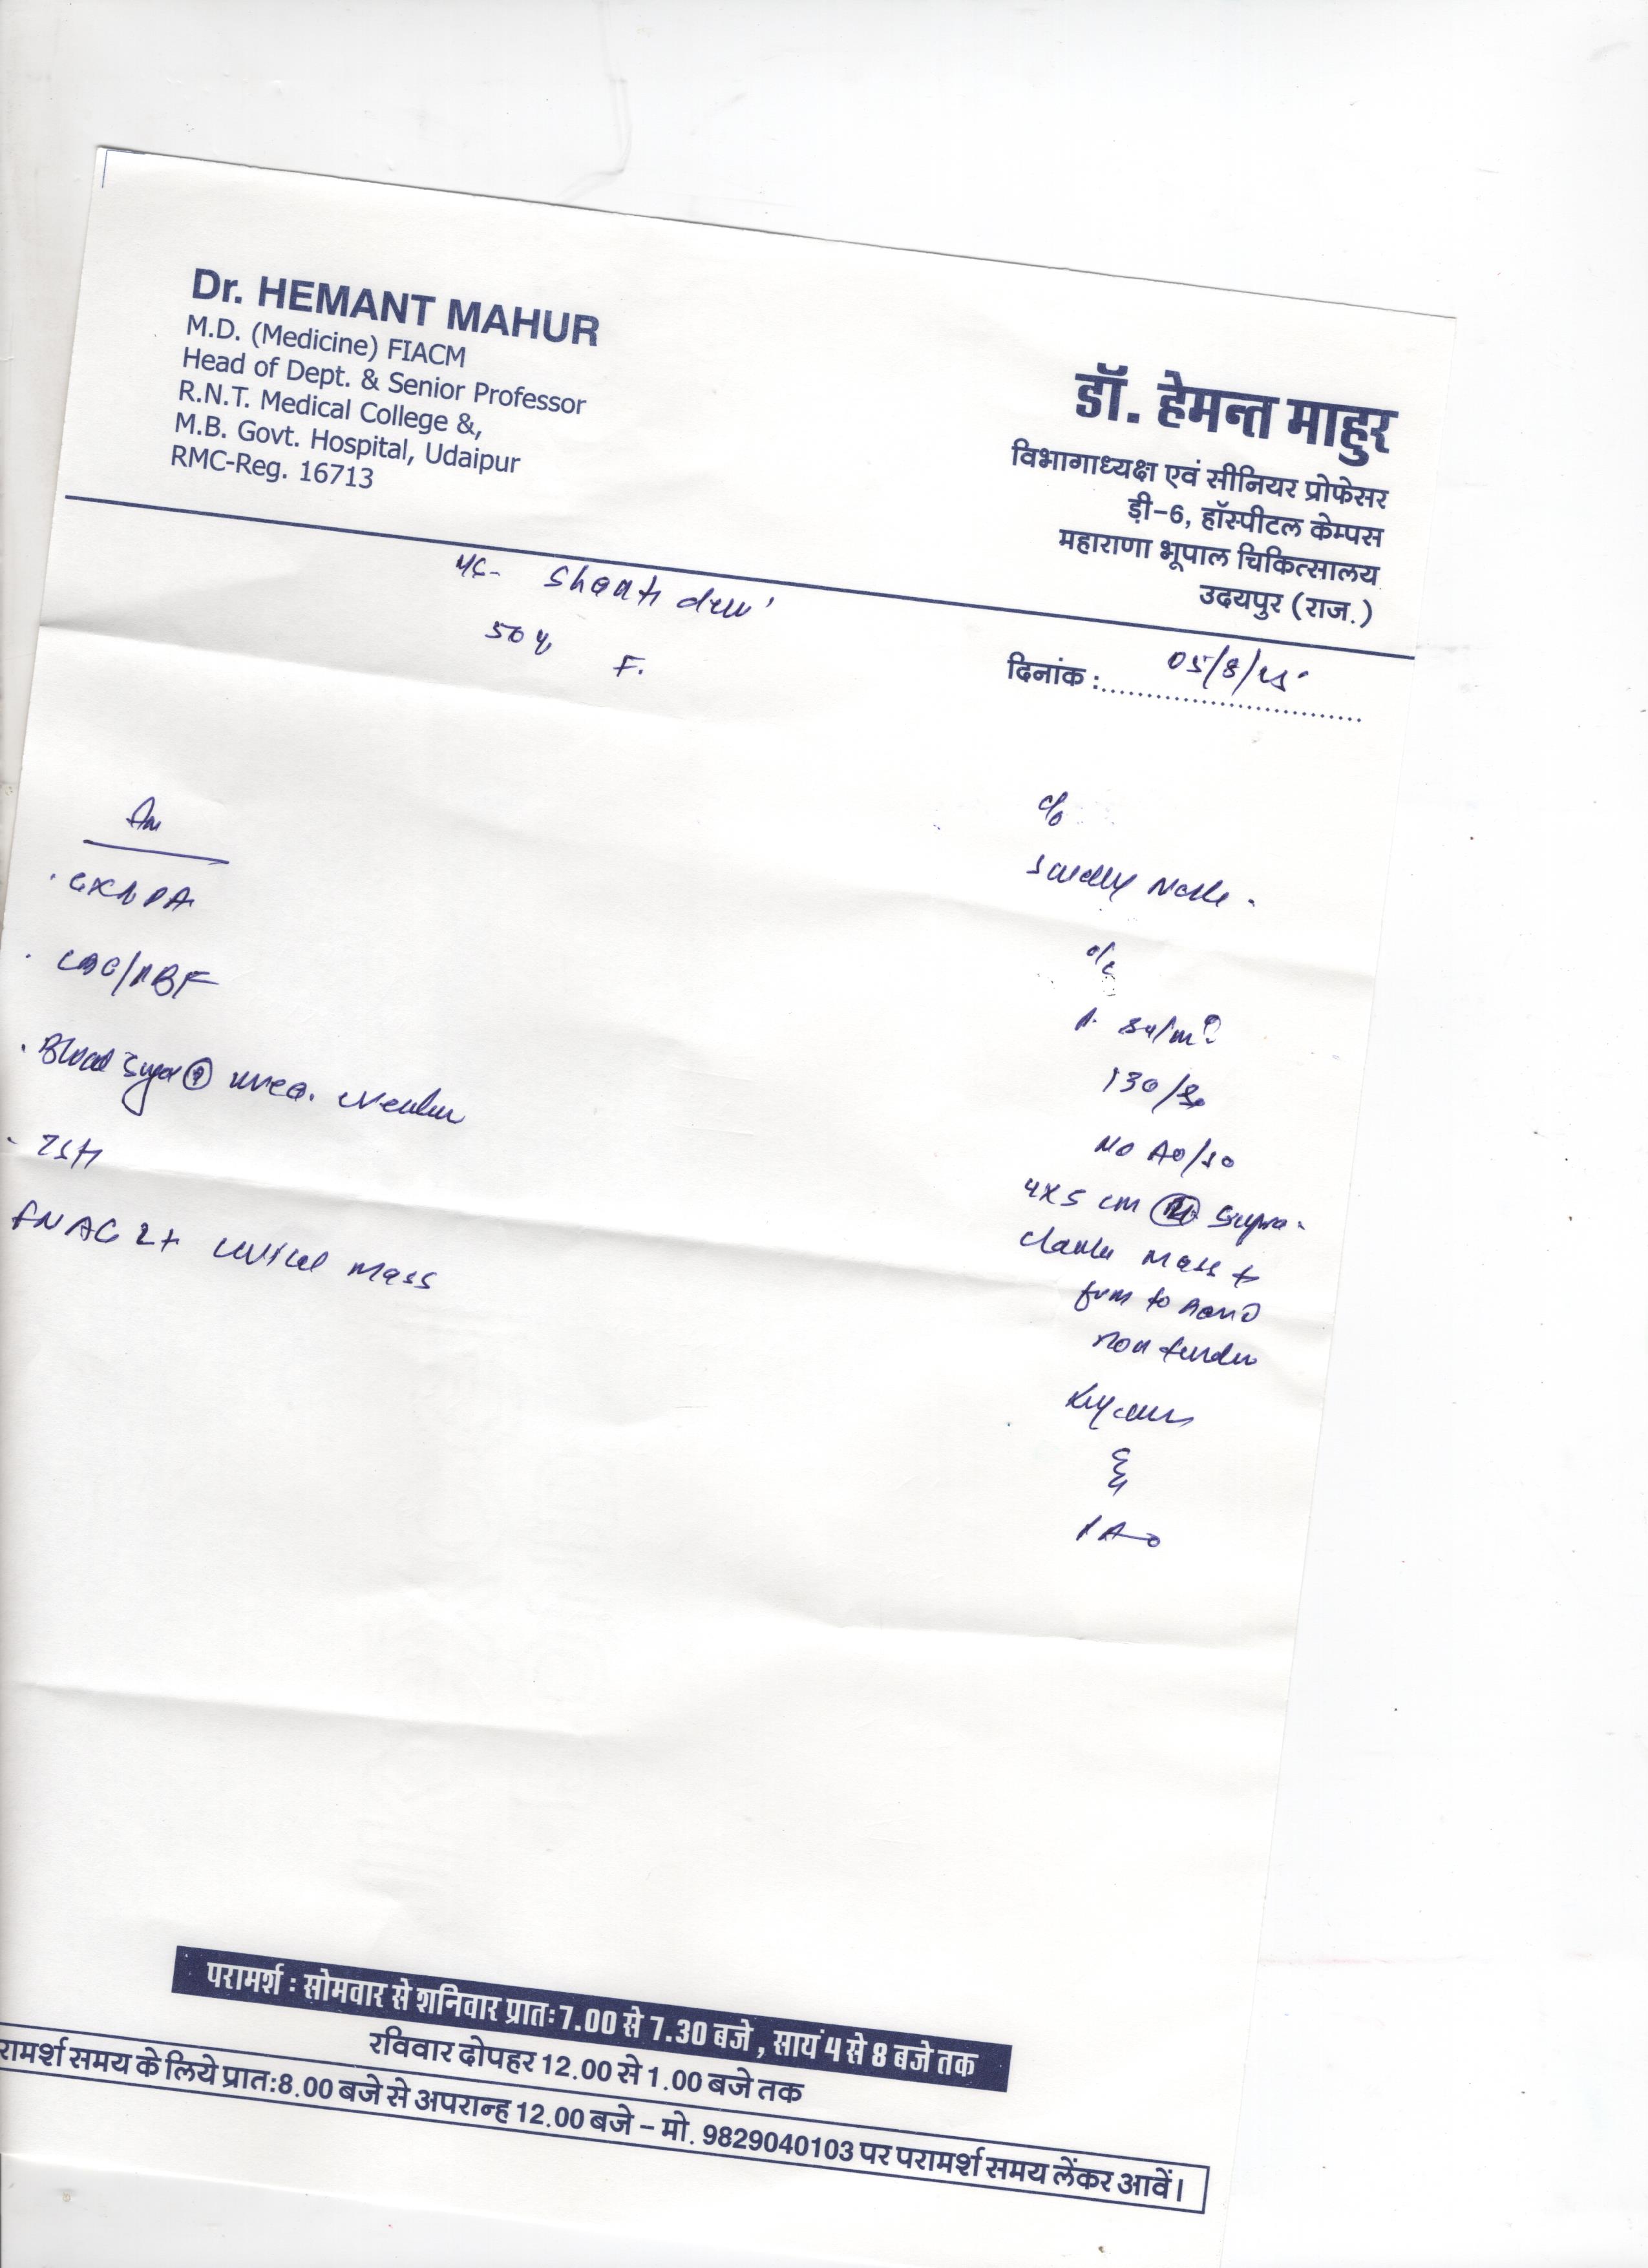 Dr. HEMANT MAHUR
M.D. (Medicine) FIACM
Head of Dept. & Senior Professor
R.N.T. Medical College &,
M.B. Govt. Hospital, Udaipur
RMC-Reg. 16713
डॉ. हेमन्त माहुर
विभागाध्यक्ष एवं सीनियर प्रोफेसर
ड़ी-6, हॉस्पीटल केम्पस
महाराणा भूपाल चिकित्सालय
उदयपुर (राज.)
Shanti devi
50 y F.
दिनांक : 05/8/25
CBC/PBF
Blood Sugar urea.
TSH
FNAC Lt cervical mass
c/o
Swelling Neck.
o/e
P. 84/m
130/80
NO
4x5 cm Supra-
mass +
firm to hard
non tender
परामर्श : सोमवार से शनिवार प्रातः 7.00 से 7.30 बजे , सायं 4 से 8 बजे तक
रविवार दोपहर 12.00 से 1.00 बजे तक
रामर्श समय के लिये प्रात:8.00 बजे से अपरान्ह 12.00 बजे – मो. 9829040103 पर परामर्श समय लेंकर आवें।